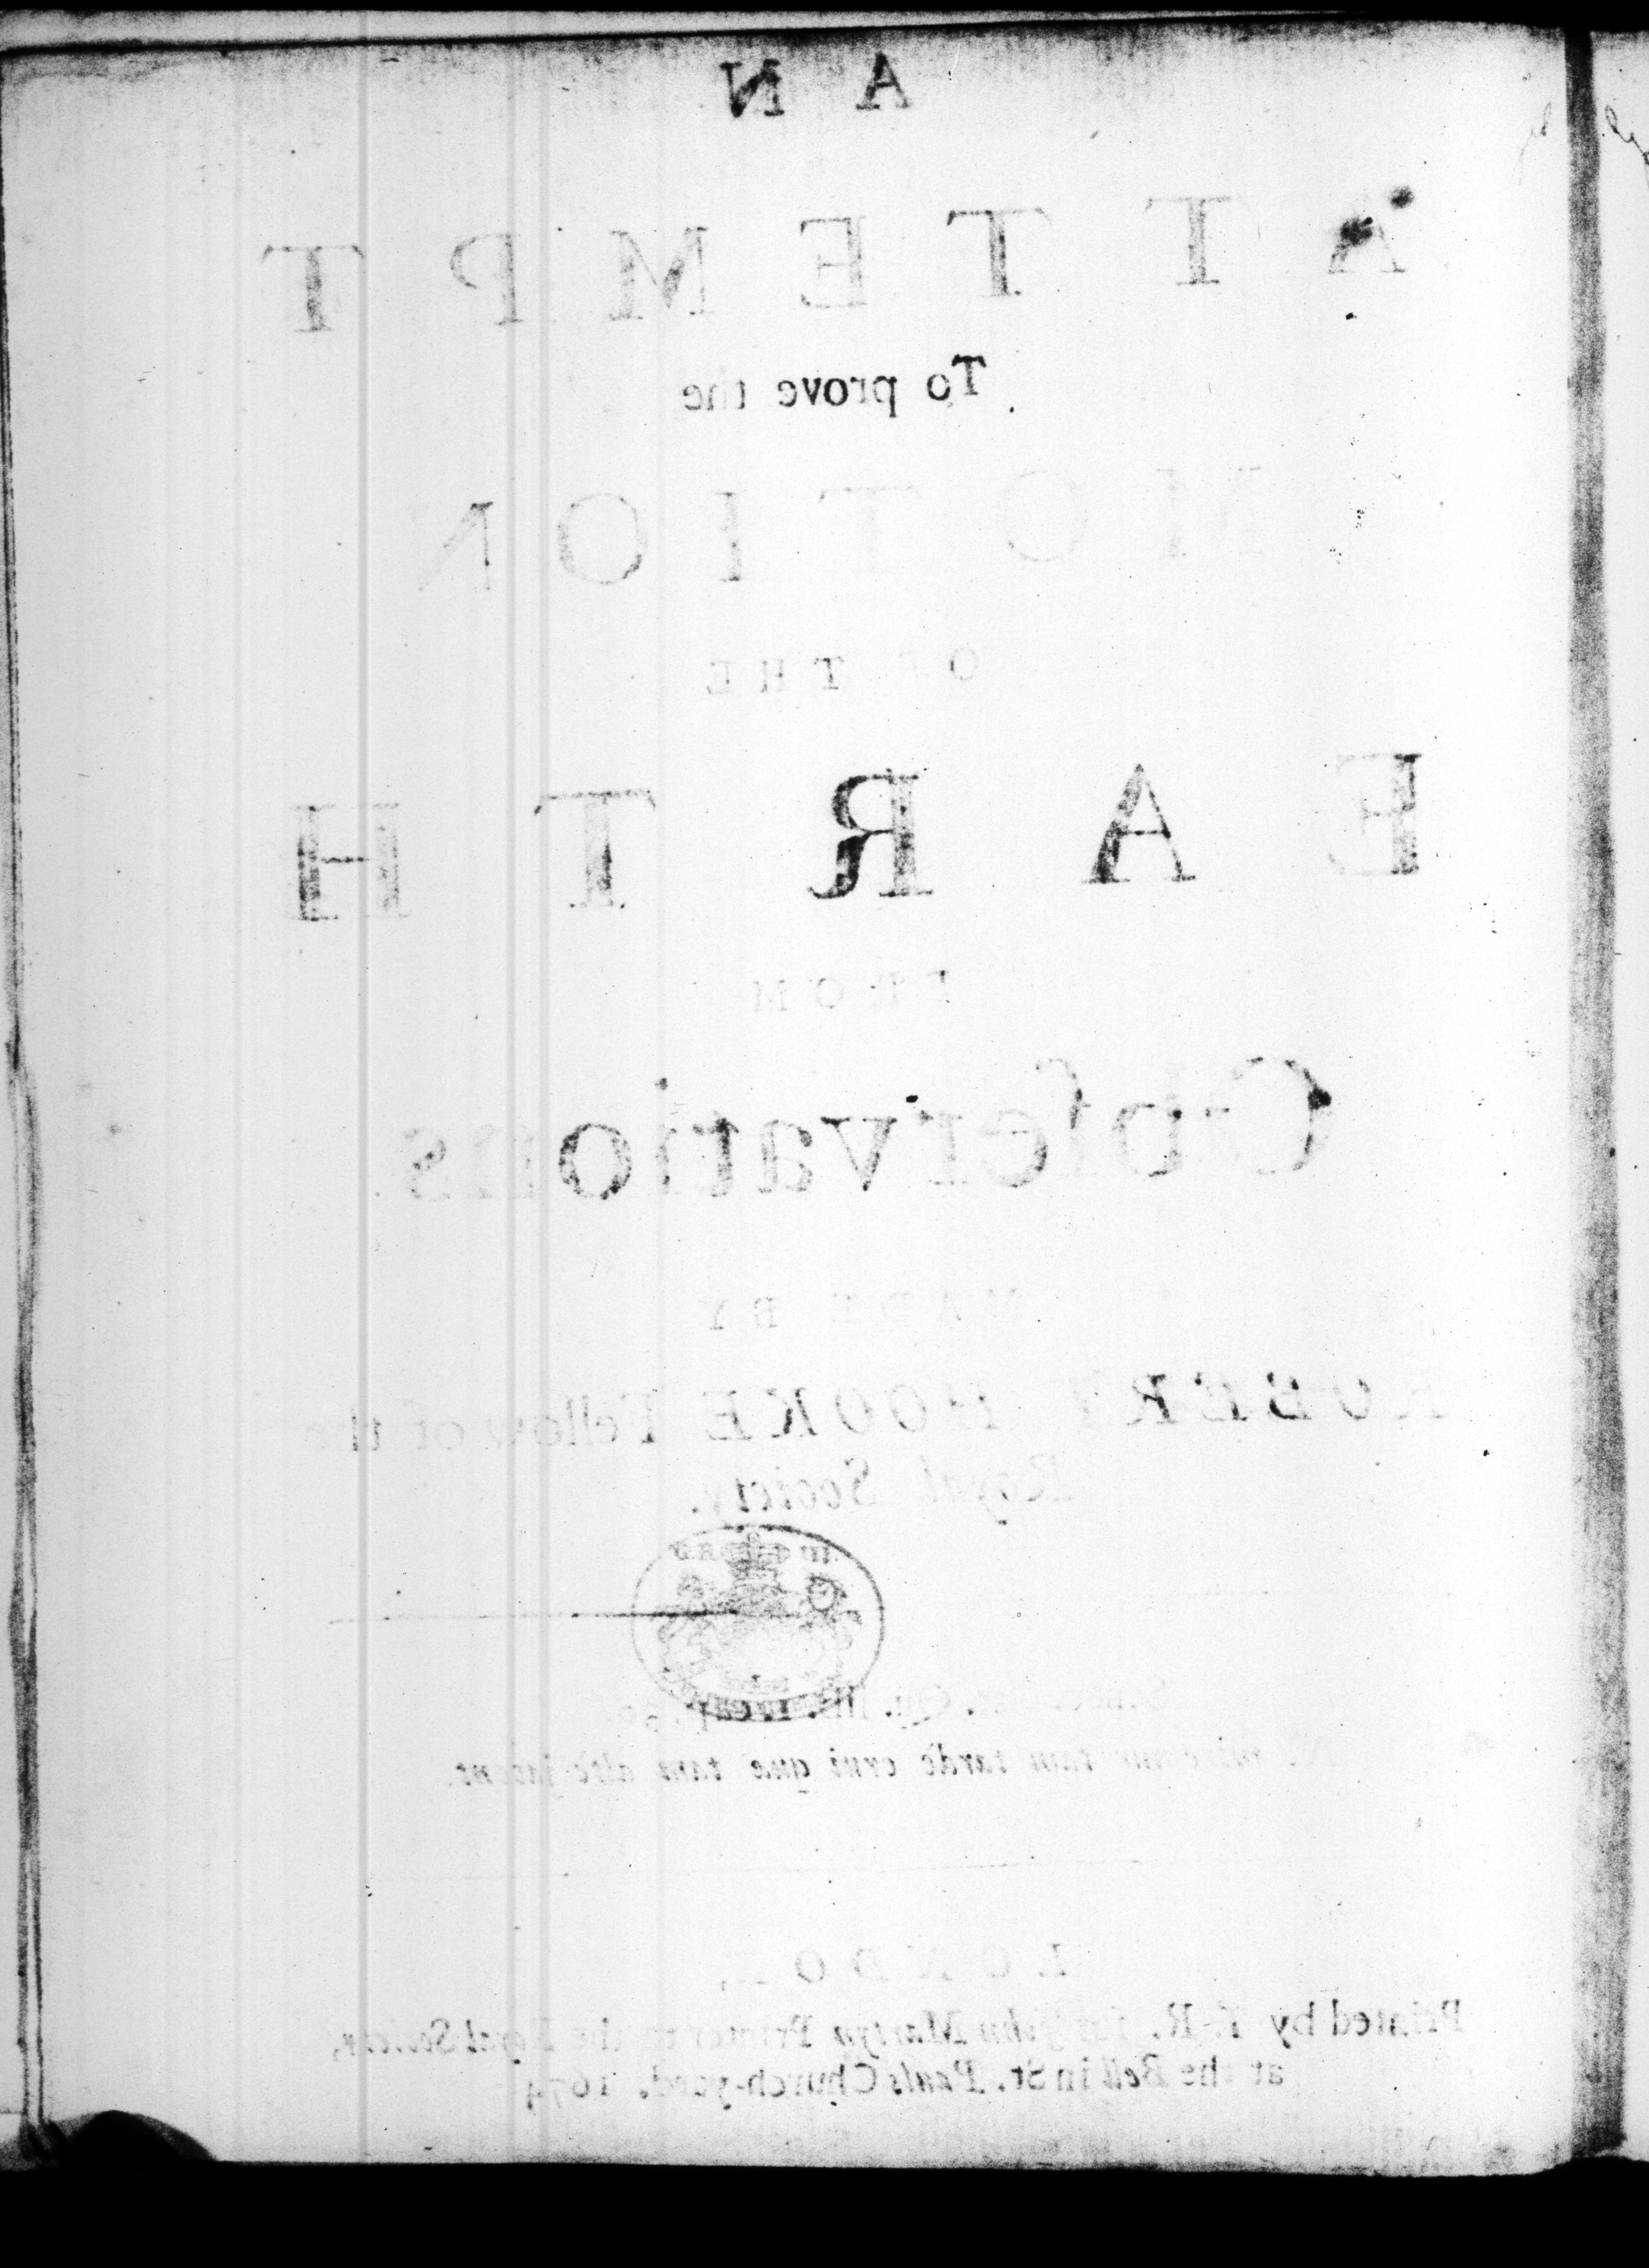 AN
ATTEMPT
To prove the
MOTION
OF THE
EARTH
FROM
Obſervations
MADE BY
ROBERT HOOKE Fellow of the
Royal Society.
Qu. lib. cap.
miremur tam tarde erui quæ tam alte jacent.
LONDON,
Printed by T. R. for John Martyn Printer to the Royal Society,
at the Bell in St. Pauls Church-yard. 1674